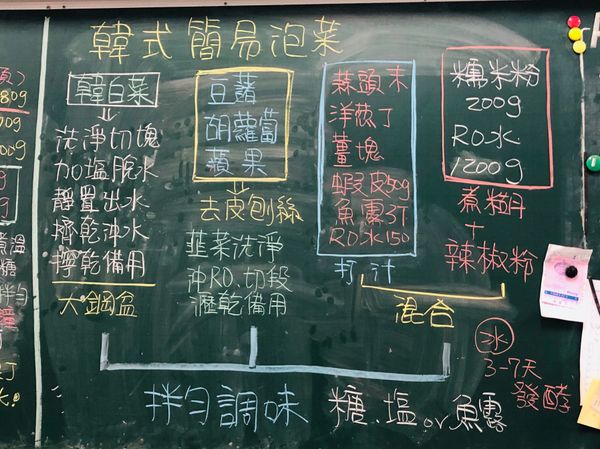 韓式簡易泡菜
80g
韓白菜
洗淨切塊
加塩脫水
靜置出水
擠乾沖水
擰乾備用
大鋼盆
豆薯
胡蘿蔔
蘋果
去皮刨絲
韮菜洗淨
沖RO.切段
瀝乾備用
蒜頭末
洋蔥丁
薑塊
蝦皮50g
魚露3T
RO水150
打汁
糯米粉
200g
RO水
1200g
煮
+
辣椒粉
混合
冰
3-7天
發酵
拌勻調味 糖.塩or魚露